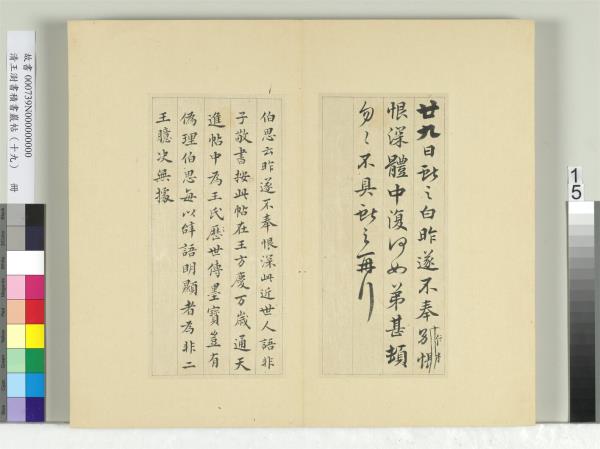 廿九日獻之白昨遂不奉別悵
恨深體中復何如弟甚頓
匆匆不具獻之再行
伯思云昨遂不奉恨深此近世人語非
子敬書按此帖在王方慶万歲通天
進帖中為王氏歷世傳墨寶豈有
偽理伯思每以辭語明顯者為非二
王臆决無據
故書 000739N000000000
清王澍書積書巖帖(十九) 冊
15